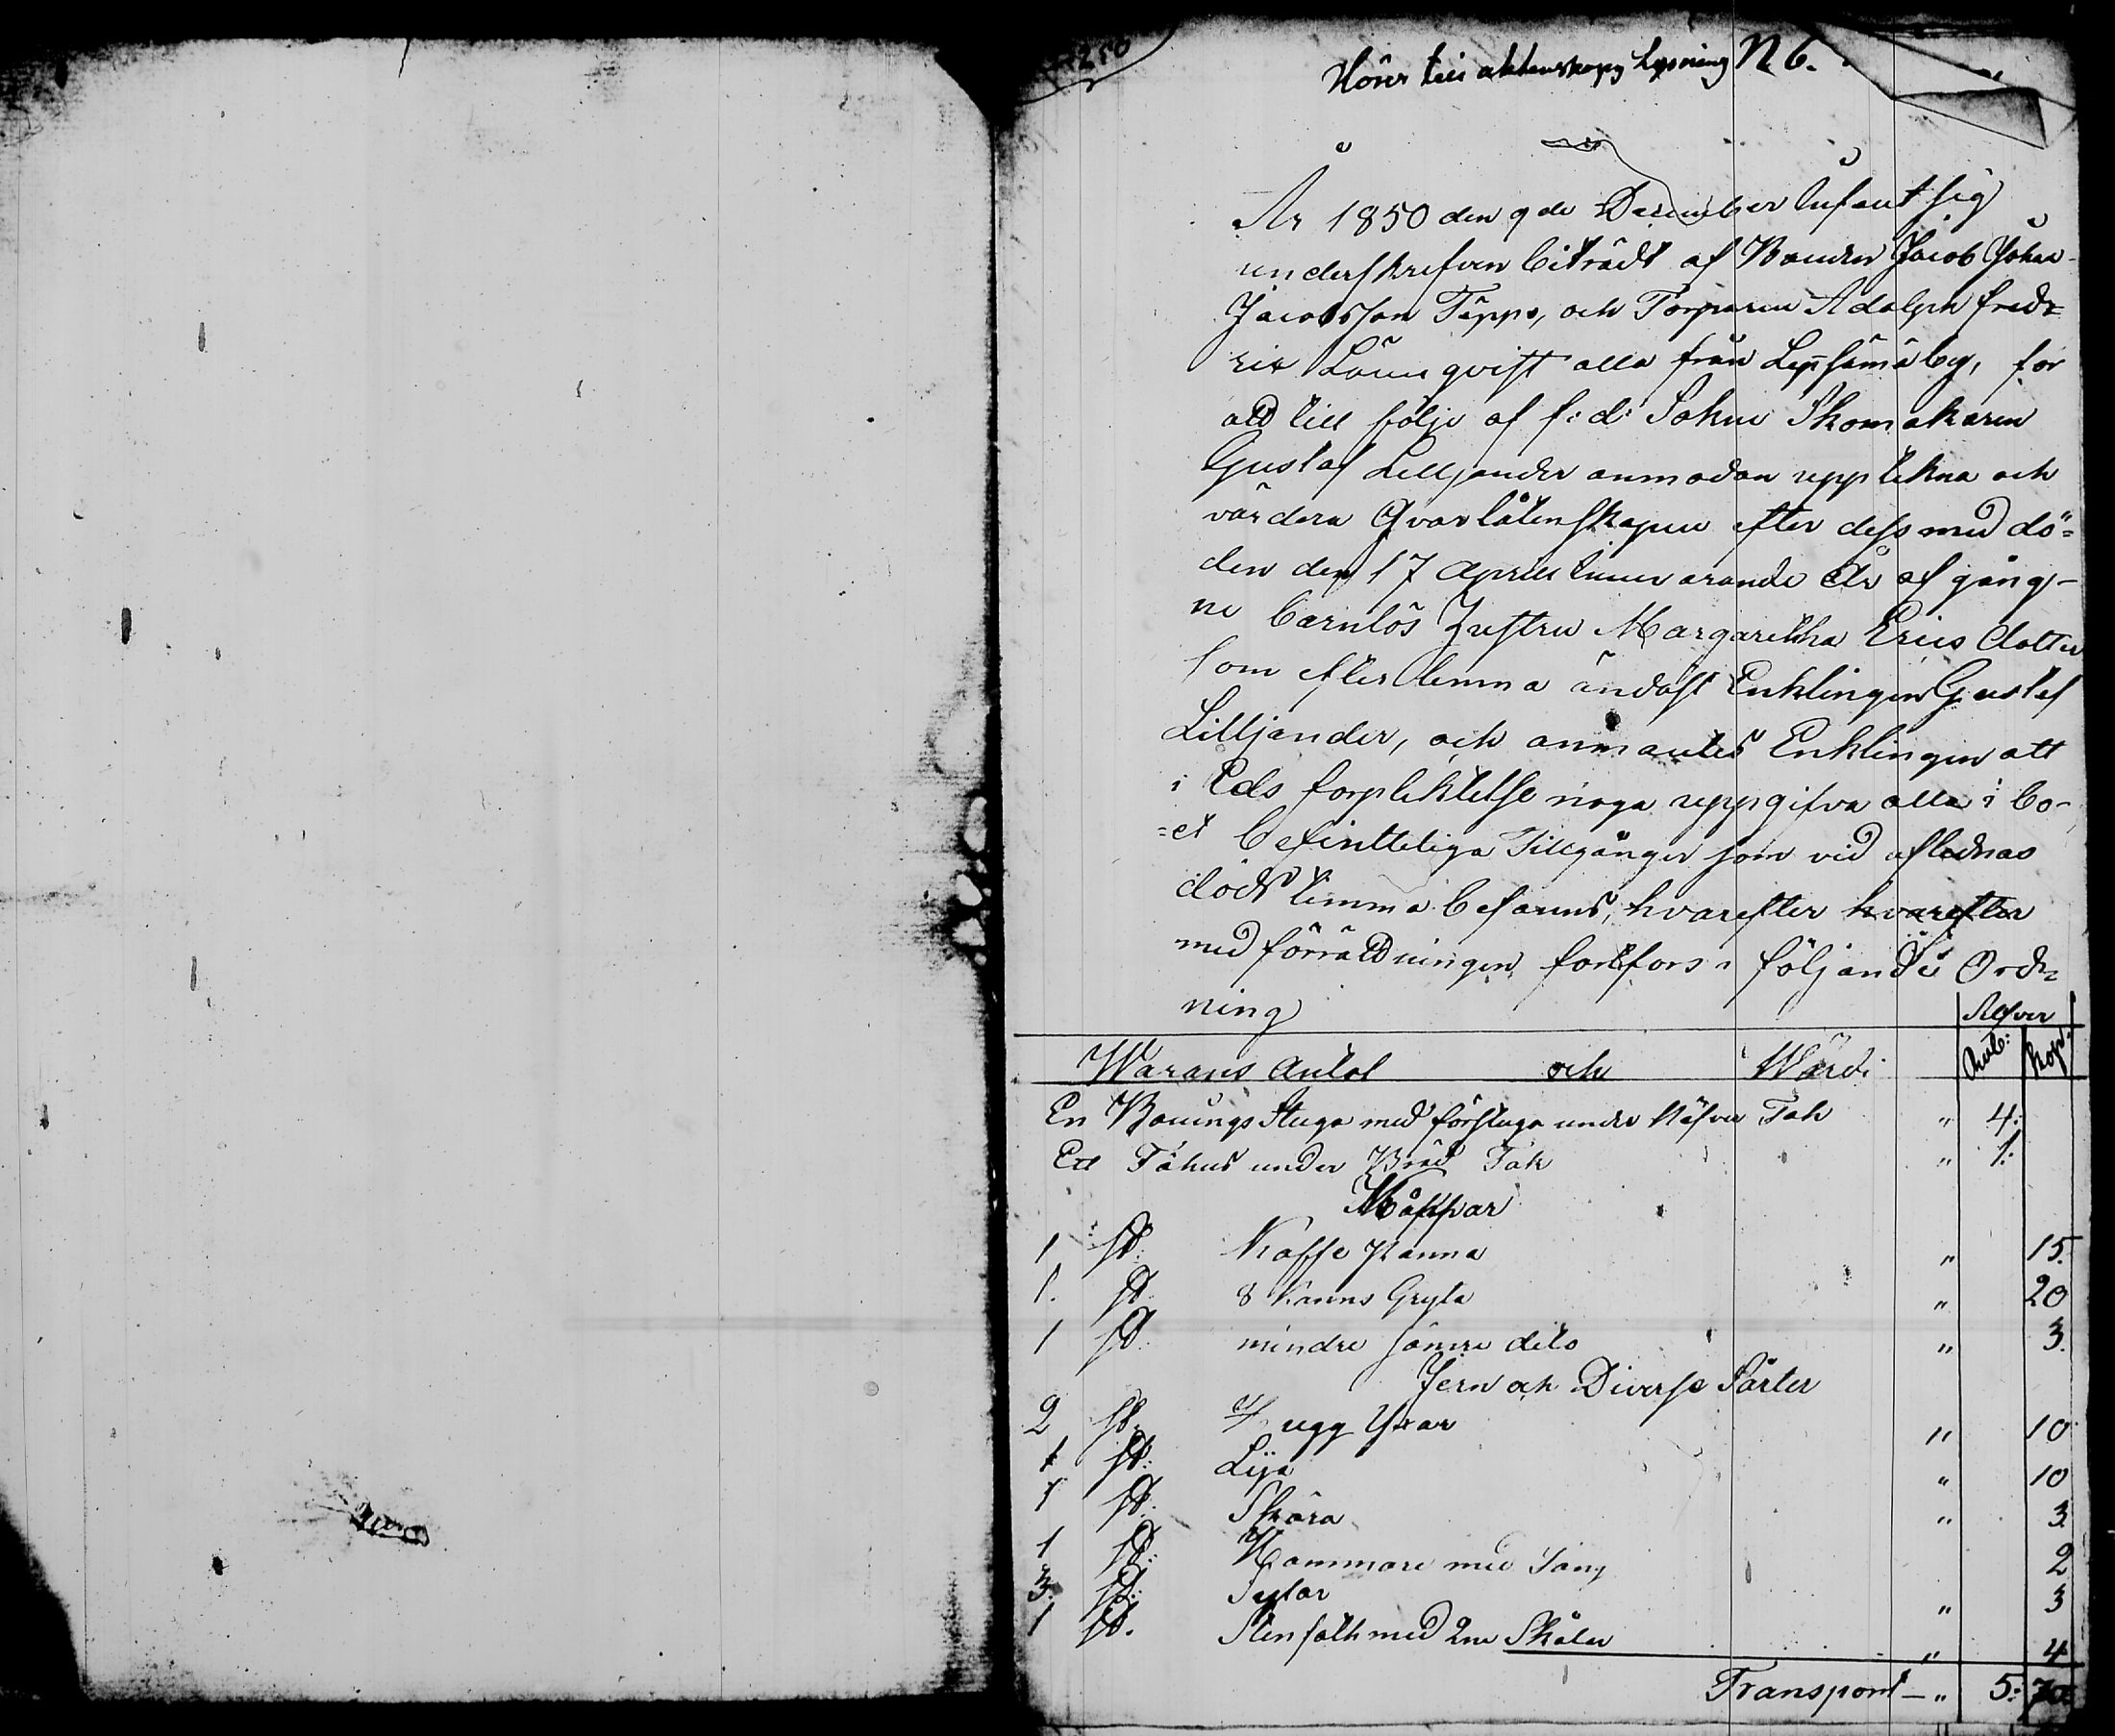 250
Hörer till äktenskaps Lysning N 6.
År 1850 den 9de December infant sig
underskrifven biträdt af Bonden Jacob Johan
Jacobsson Täppo, och Torparen Adolph Fredr=
rix Lönnqvist alla från Lepsämä by, för
att till följe af f: d: Sokne Skomakaren
Gustaf Lilljander anmodan uppteckna och
värdera Qvarlåtenskapen efter dess med dö=
den den 17 Aprill innevarande År afgång-
ne barnlös Hustru Margaretha Ericsdotter
som efterlemna ändast Enklingen Gustaf
Lilljander, och anmantes Enklingen att
i Eds förpliktelse noga uppgifva alla i bo-
=et befintteliga Tillgånger som vid aflednas
döds timma befanns, hvarefter hvarefter
med förrättningen fortfors i följande Ord=
ning
Silfver
Warans Antal och Wärde Rub: Kop:
En Bonings Stuga med förstuga under Näfver Tak " 4:
Ett Fähus under Bräd Tak " 1:
Kåppar
1 st: Kaffe Panna " 15.
1. st. 8 Kanns Gryta " 20
1 st. mindre sämre dito " 3.
Jern och Diverse Sårter
2 st. Hugg Yxar " 10
1 st: Lija " 10
1 st. Skära " 3.
1 st: Hammare med Tång 2
3. st: Sylar " 3
1 st. Stenfath med 2ne Skålar " 4
Transport — " 5: 70.